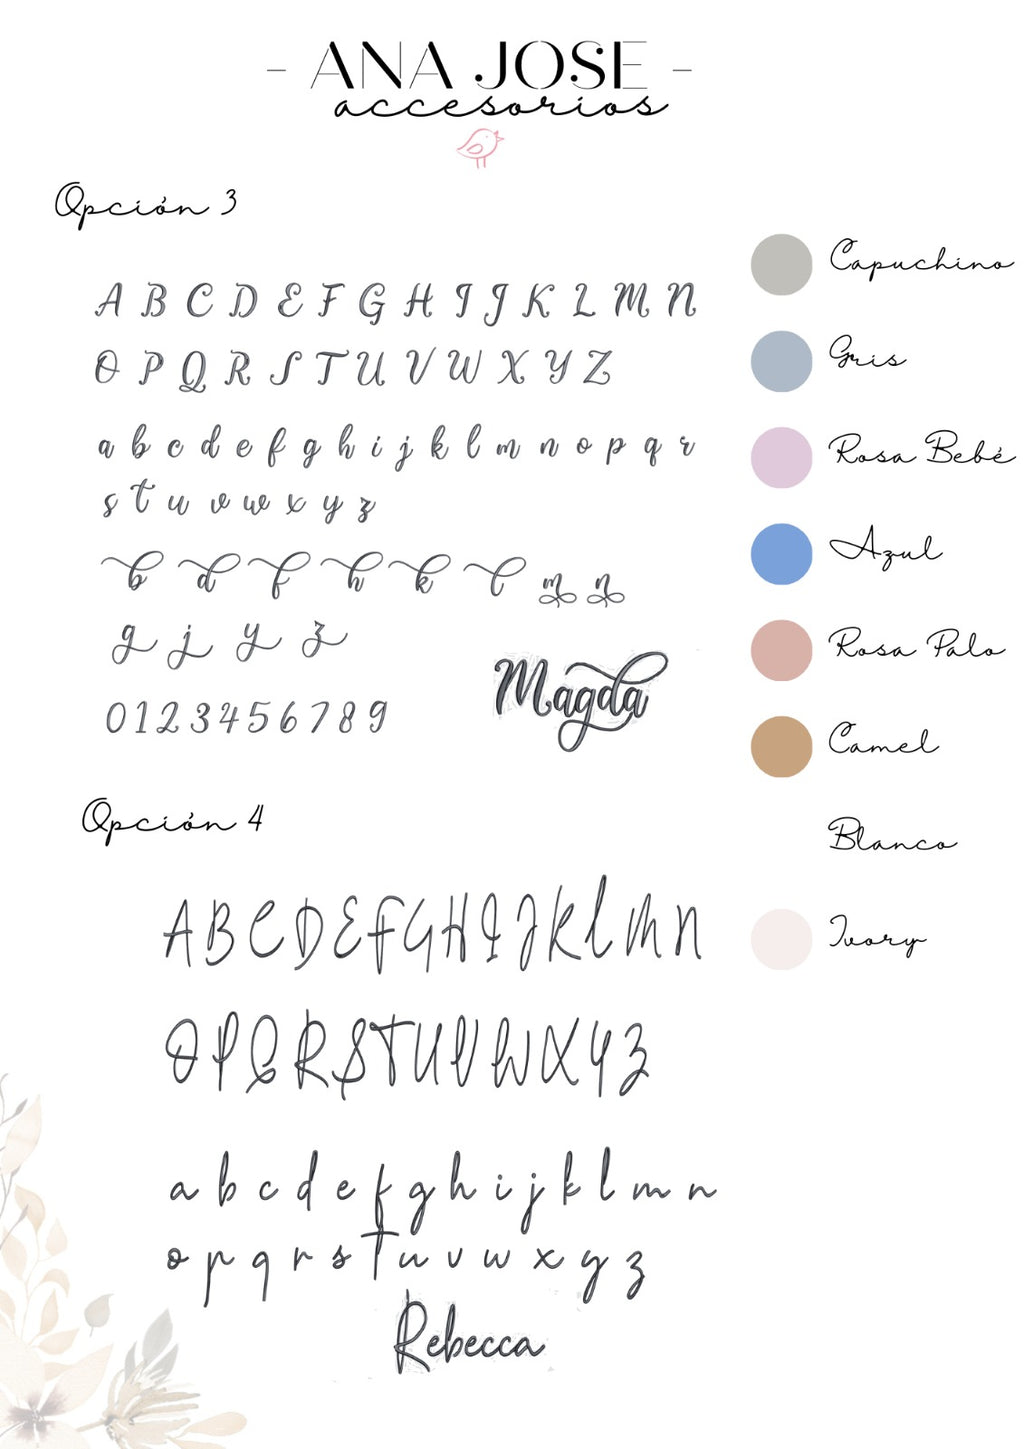 - ANA JOSE -
accesorios
Opción 3
A B C D E F G H I J K L M N
O P Q R S T U V W X Y Z
a b c d e f g h i j k l m n o p q r
s t u v w x y z
b d f h k l m n
g j y z
0 1 2 3 4 5 6 7 8 9
Magda
Opción 4
A B C D E F G H I J K L M N
O P Q R S T U V W X Y Z
a b c d e f g h i j k l m n
o p q r s t u v w x y z
Rebecca
Capuchino
Gris
Rosa Bebé
Azul
Rosa Palo
Camel
Blanco
Ivory